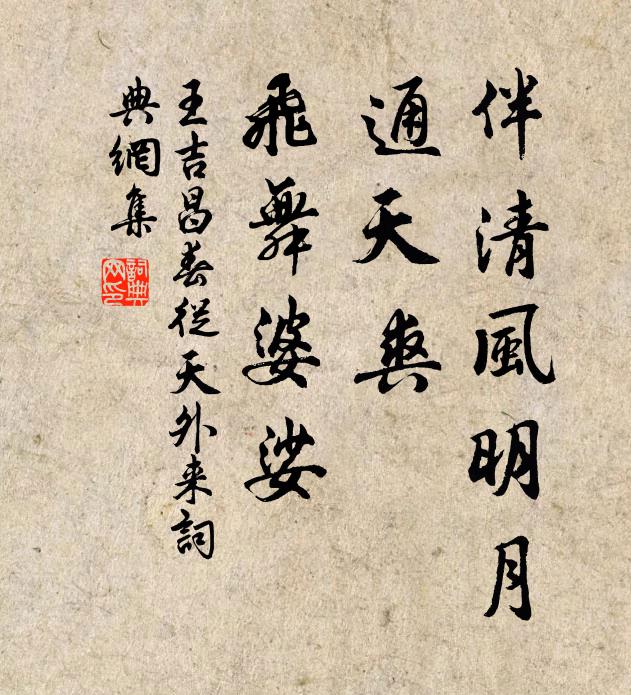 伴清風明月
通天爽
飛舞婆娑
王吉昌春從天外来詞
典網集
詞典網印